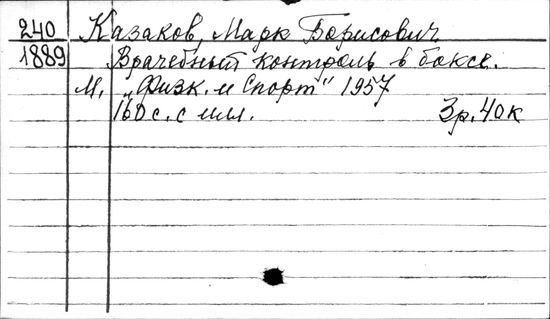 240 Казаков, Марк Борисович
1889 Врачебный контроль в боксе.
М. „Физк. и Спорт" 1957
160 с. с илл. 3р. 40к